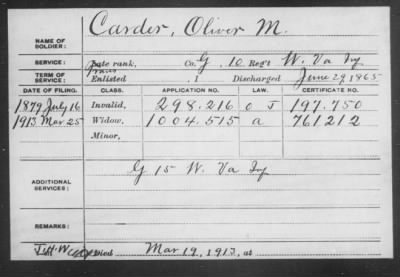 NAME OF SOLDIER: Carder, Oliver M.
SERVICE: Late rank, Co. G, 10 Reg't W. Va Inf
TERM OF SERVICE: Enlisted , 1 Discharged June 29, 1865
DATE OF FILING. CLASS. APPLICATION NO. LAW. CERTIFICATE NO.
1879 July 16 Invalid, 298.216 O J 197.750
1913 Mar 25 Widow, 1004.515 a 761212
Minor,
ADDITIONAL SERVICES: G 15 W. Va Inf
REMARKS:
Died Mar 19, 1913, at